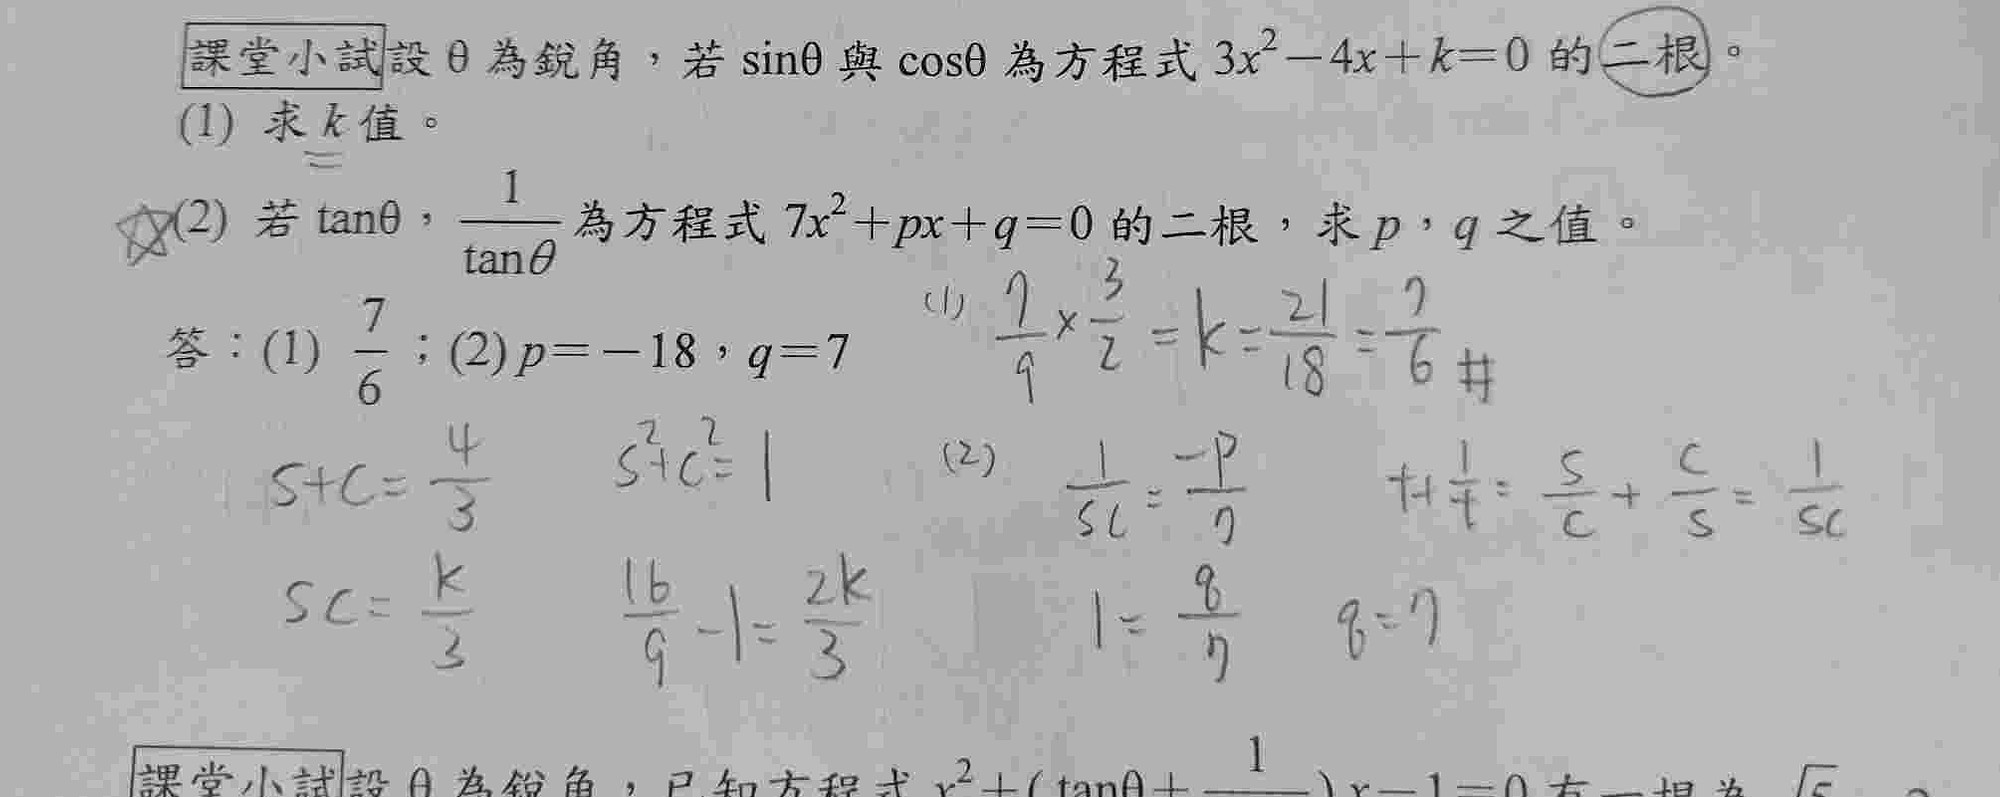 課堂小試設 θ 為銳角，若 sinθ 與 cosθ 為方程式 3x²－4x＋k＝0 的二根。
(1) 求 k 值。
☆(2) 若 tanθ，1/tanθ 為方程式 7x²＋px＋q＝0 的二根，求 p，q 之值。
答：(1) 7/6；(2) p＝－18，q＝7
(1) 7/9 × 3/2 = k = 21/18 = 7/6 #
S+C = 4/3 S²+C² = 1
(2) 1/SC = -P/7 t+1/t = S/C + C/S = 1/SC
SC = k/3 16/9 - 1 = 2k/3
1 = q/7 q = 7
課堂小試設 θ 為銳角，已知方程式 x²＋(tanθ＋1/
)x－1＝0 有一根為